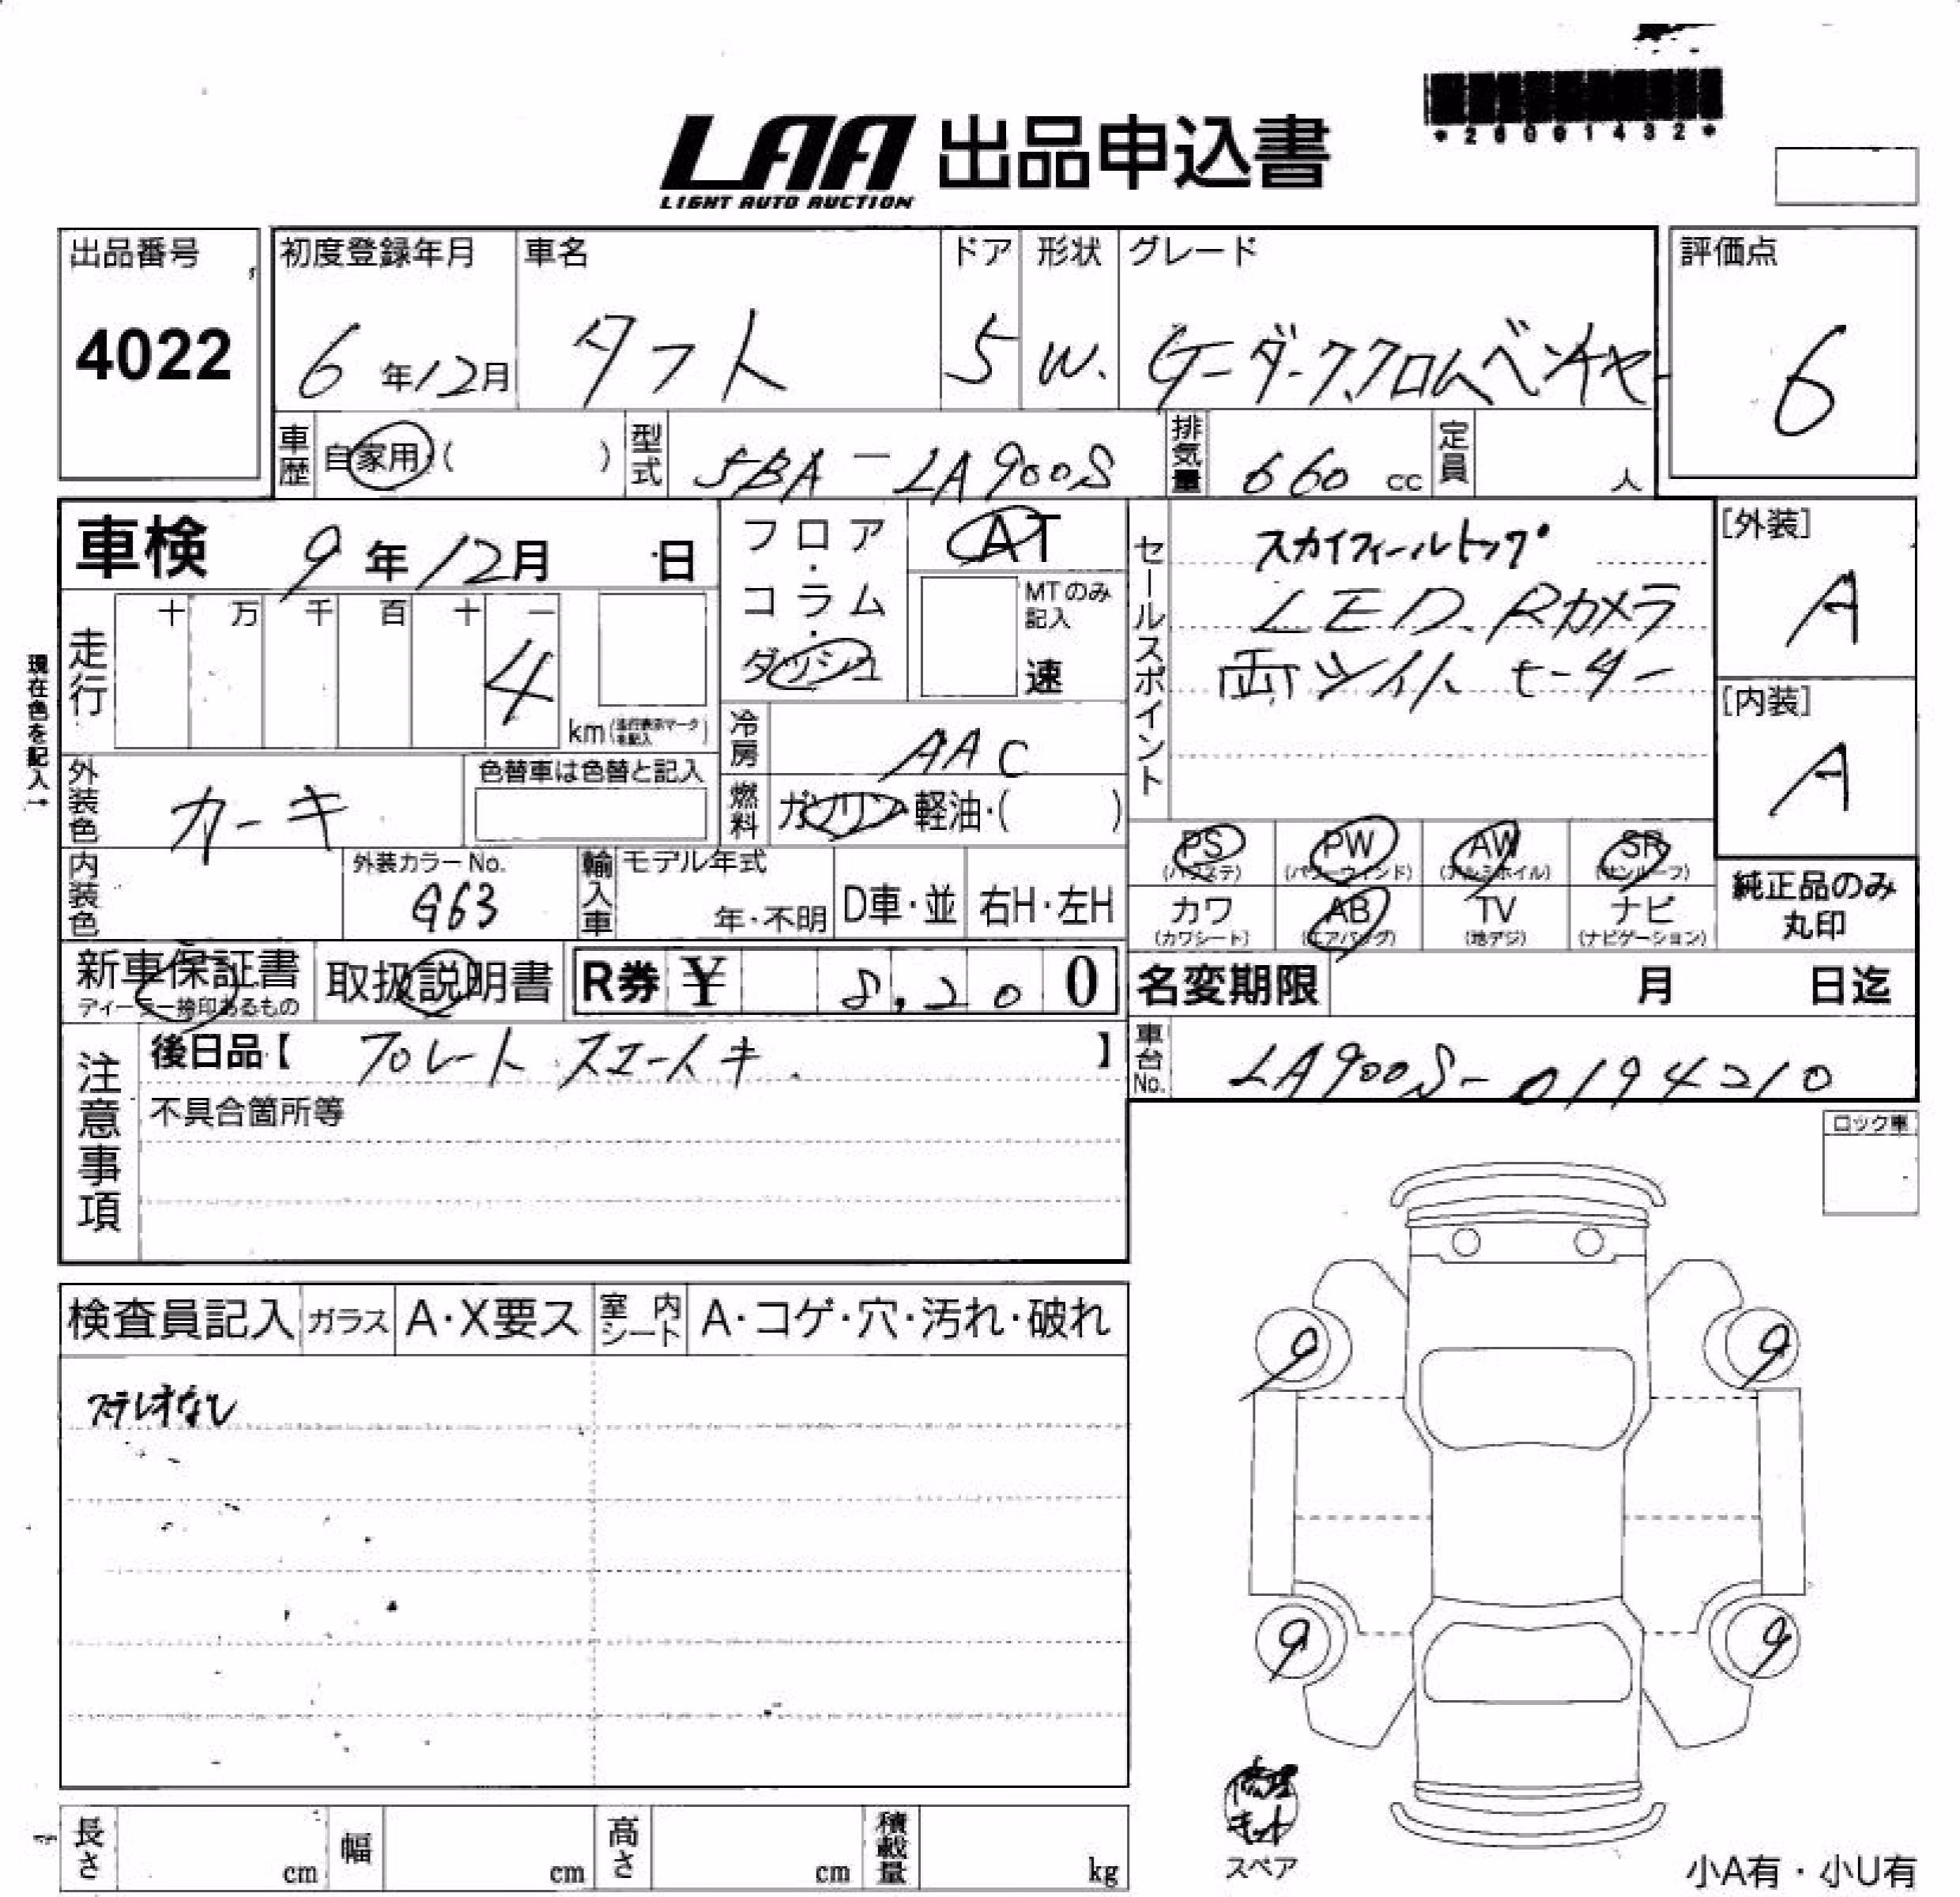 *26001432*
LAA 出品申込書
LIGHT AUTO AUCTION
出品番号
4022
初度登録年月
6年12月
車名
タフト
ドア
5
形状
W.
グレード
Gーダーククロムベンチャー
評価点
6
車歴
自家用・( )
型式
5BA-LA900S
排気量
660cc
定員
人
車検 9年12月 日
フロア・コラム・ダッシュ
AT
MTのみ記入
速
セールスポイント
スカイフィールトップ
LED.Rカメラ
両ツイト ヒーター
[外装]
A
[内装]
A
現在色を記入→
走行
十 万 千 百 十 一
4
km(走行表示マークを記入)
冷房
AAC
燃料
ガソリン・軽油・( )
外装色
カーキ
色替車は色替と記入
内装色
外装カラーNo.
G63
輸入車
モデル年式
年・不明
D車・並
右H・左H
PS
(パワステ)
PW
(パワーウィンド)
AW
(アルミホイル)
SR
(サンルーフ)
カワ
(カワシート)
AB
(エアバッグ)
TV
(地デジ)
ナビ
(ナビゲーション)
純正品のみ
丸印
新車保証書
ディーラー捺印あるもの
取扱説明書
R券 ¥ 8,200
名変期限 月 日迄
注意事項
後日品【 プレート スエーイキ. 】
不具合箇所等
車台No.
LA900S-0194210
ロック車
検査員記入
ガラス
A・X要ス
室内シート
A・コゲ・穴・汚れ・破れ
ステレオなし
9
9
9
9
修理
キット
スペア
長さ cm
幅 cm
高さ cm
積載量 kg
小A有・小U有